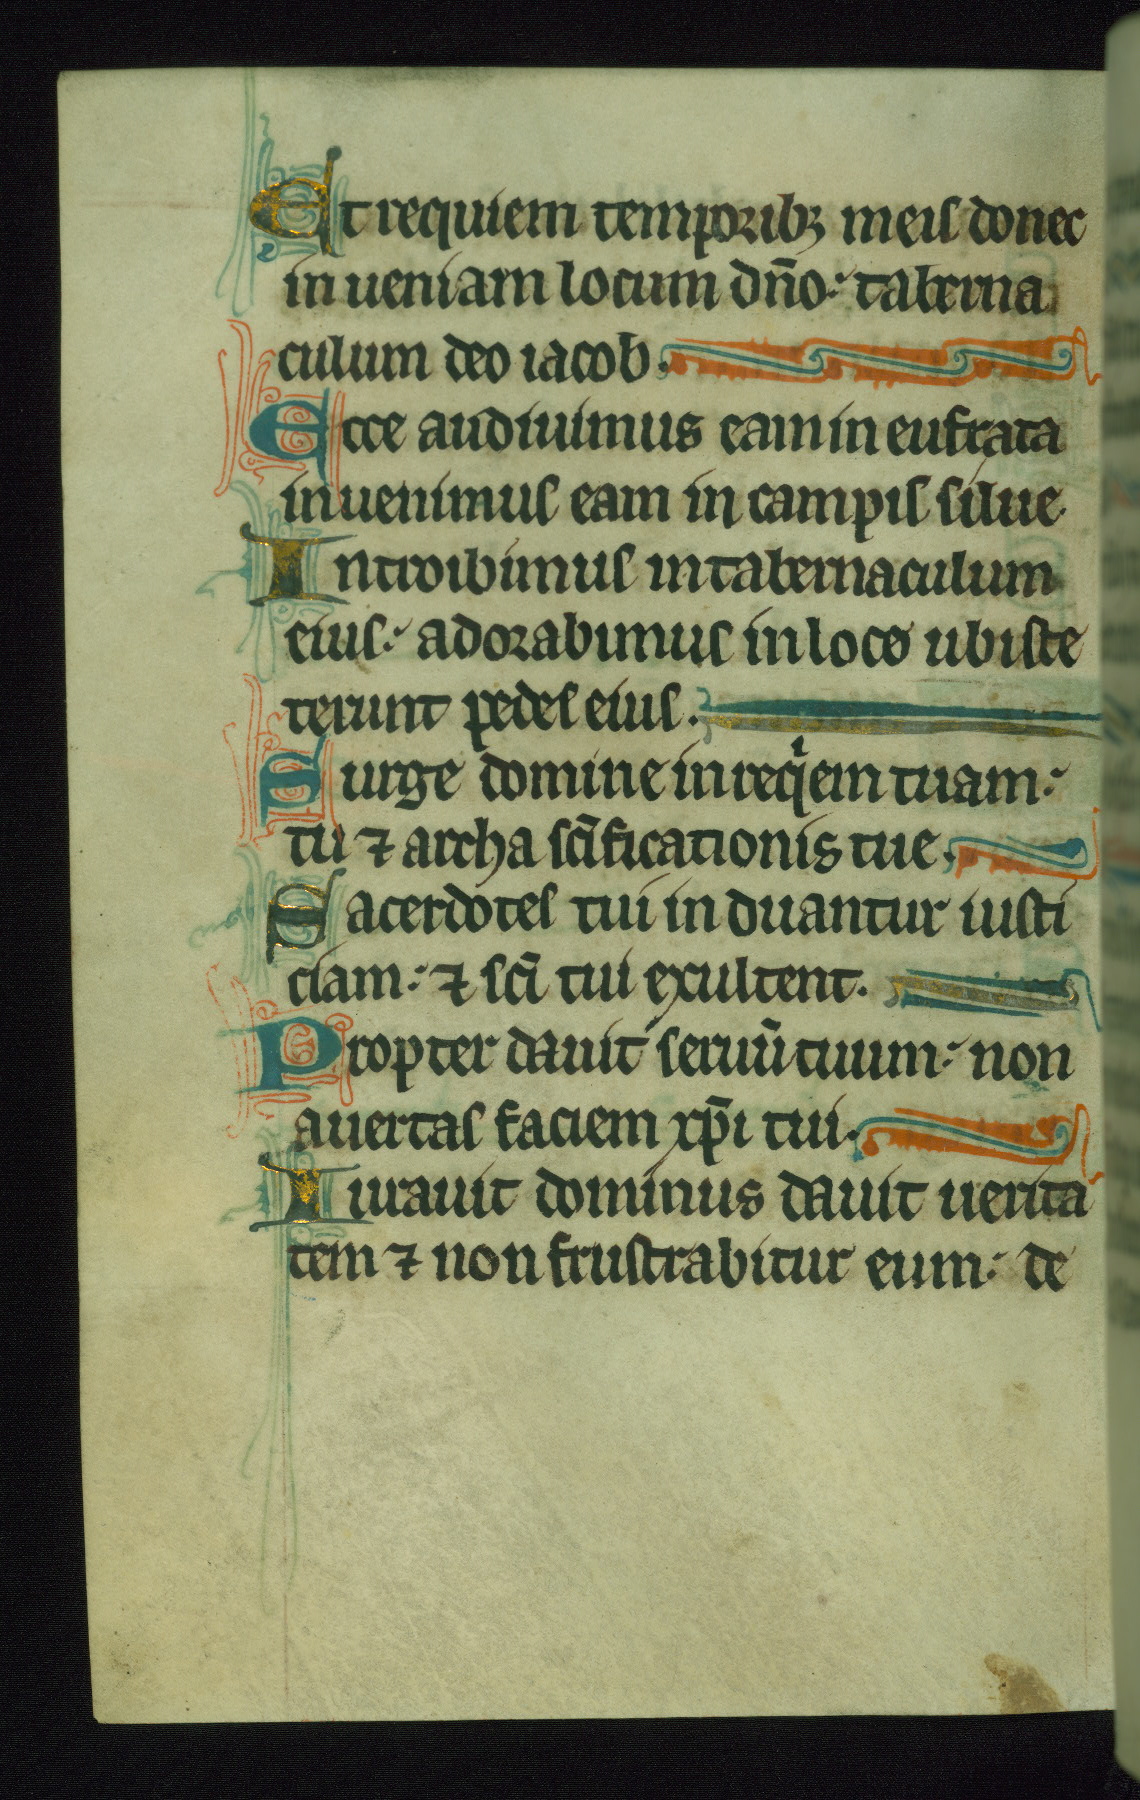 Et requiem temporibꝫ meis donec
inueniam locum dn̄o: taberna
culum deo iacob.
Ecce audiuimus eam in eufrata
inuenimus eam in campis silue
Introibimus in tabernaculum
eius: adorabimus in loco ubi ste
terunt pedes eius.
Surge domine in reqͥem tuam:
tu ⁊ archa sc̄ificationis tue.
Sacerdotes tui induantur iusti
ciam: ⁊ sc̄i tui exultent.
Propter dauit seruū tuum: non
auertas faciem xp̄i tui.
Iurauit dominus dauit uerita
tem ⁊ non frustrabitur eum: de